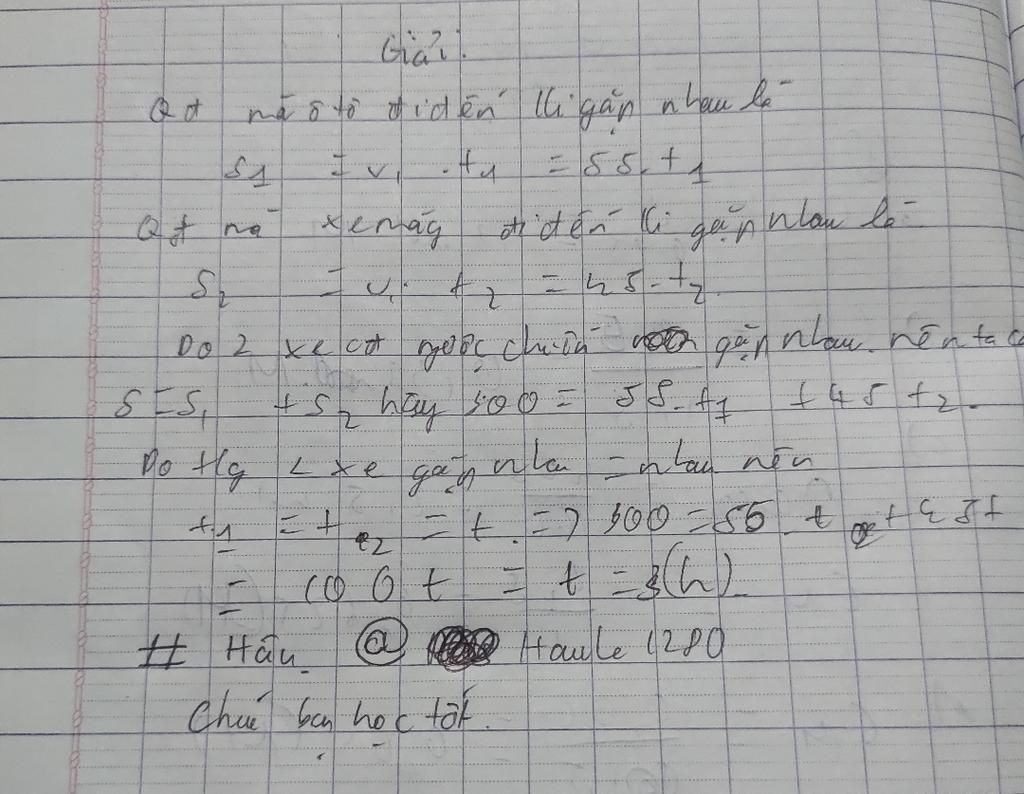 Giải:
Qđ mà ô tô đi đến khi gặp nhau là
S1 = v1 . t1 = 55. t1
Qđ mà xe máy đi đến khi gặp nhau là
S2 = v. t2 = 45. t2
Do 2 xe cđ ngược chiều gặp nhau. nên ta có
S = S1 + S2 hay 300 = 55. t1 + 45 t2.
Do tg 2 xe gặp nhau = nhau nên
t1 = t2 = t. => 300 = 55 t + 45t
= 100t = t = 3(h)
# Hậu @ Haule 1280
Chúc bạn học tốt.